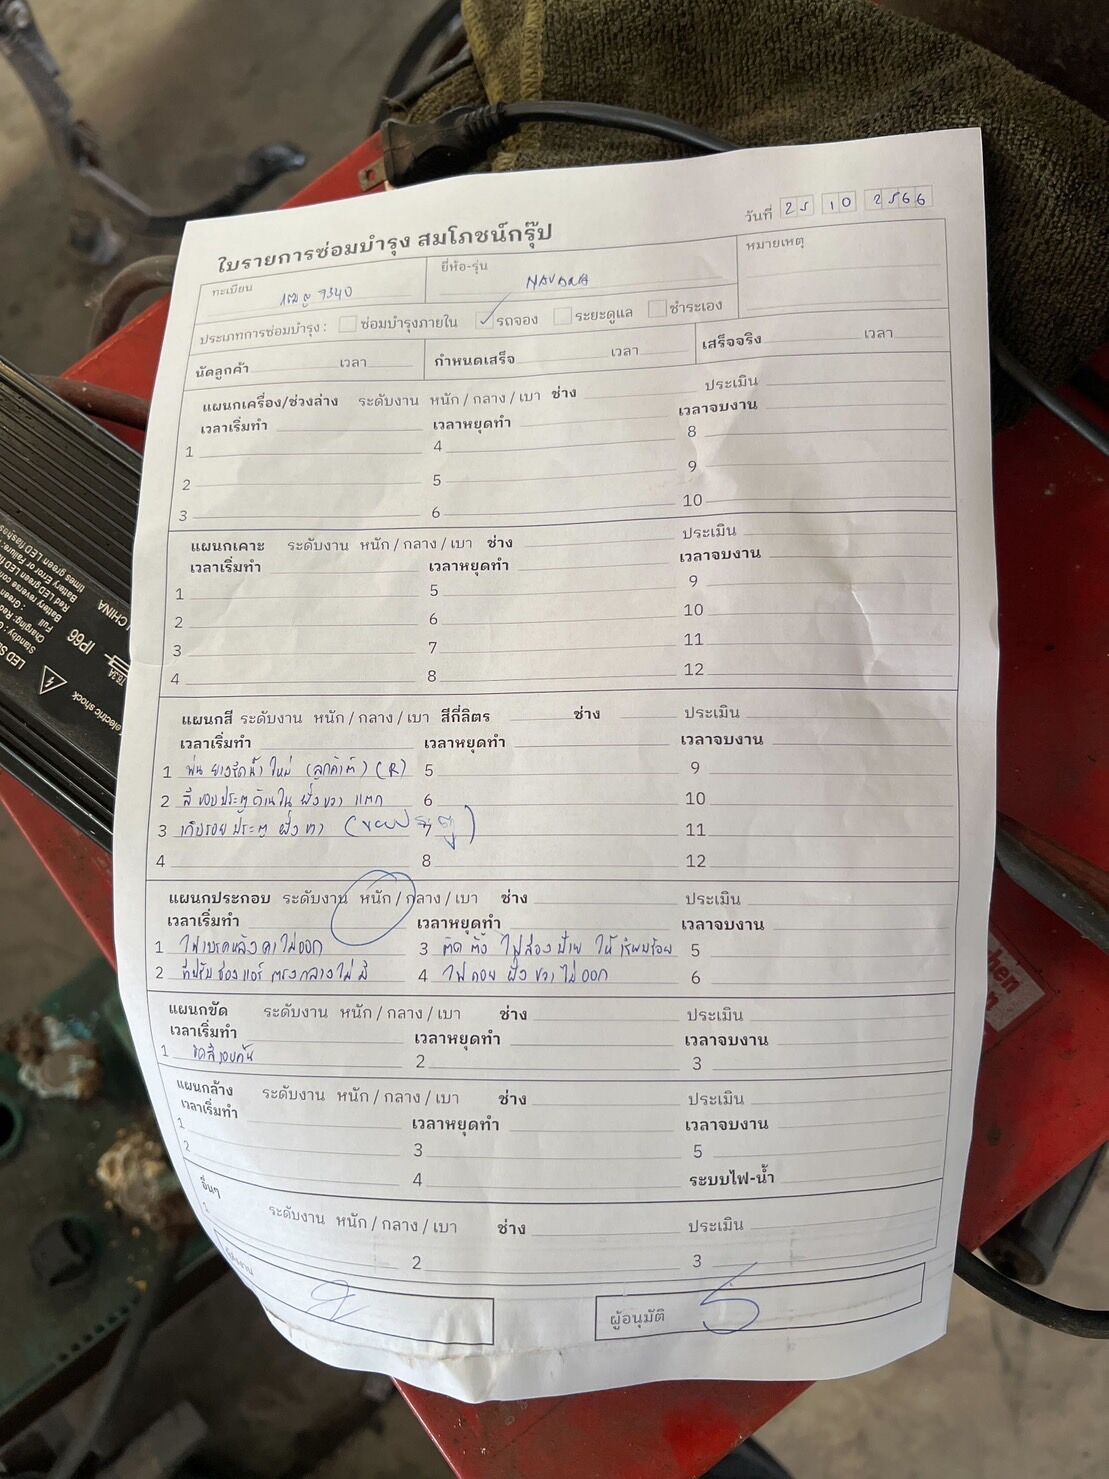 ใบรายการซ่อมบำรุง สมโภชน์กรุ๊ป
วันที่ 25 10 2566
ทะเบียน 9340
ยี่ห้อ-รุ่น NAVARA
หมายเหตุ
ประเภทการซ่อมบำรุง : ซ่อมบำรุงภายใน ✓ รถจอง ระยะดูแล ชำระเอง
นัดลูกค้า เวลา กำหนดเสร็จ เวลา เสร็จจริง เวลา
แผนกเครื่อง/ช่วงล่าง ระดับงาน หนัก / กลาง / เบา ช่าง ประเมิน
เวลาเริ่มทำ เวลาหยุดทำ เวลาจบงาน
1 4 8
2 5 9
3 6 10
แผนกเคาะ ระดับงาน หนัก / กลาง / เบา ช่าง ประเมิน
เวลาเริ่มทำ เวลาหยุดทำ เวลาจบงาน
1 5 9
2 6 10
3 7 11
4 8 12
แผนกสี ระดับงาน หนัก / กลาง / เบา สีกี่ลิตร ช่าง ประเมิน
เวลาเริ่มทำ เวลาหยุดทำ เวลาจบงาน
1 พ่น ยางรีดน้ำ ใหม่ (R) 5 9
2 สี ขอบประตู ด้านใน ฝั่ง ขวา แตก 6 10
3 เก็บรอย ประตู ฝั่ง (ขอบประตู) 7 11
4 8 12
แผนกประกอบ ระดับงาน หนัก / กลาง / เบา ช่าง ประเมิน
เวลาเริ่มทำ เวลาหยุดทำ เวลาจบงาน
1 ไฟเบรคหลัง ไม่ออก 3 ติด ตั้ง ไฟส่อง ป้าย ให้ เรียบร้อย 5
2 ที่ปรับ ช่อง แอร์ ตรงกลาง ไม่ มี 4 ไฟ ถอย ฝั่ง ขวา ไม่ ออก 6
แผนกขัด ระดับงาน หนัก / กลาง / เบา ช่าง ประเมิน
เวลาเริ่มทำ เวลาหยุดทำ เวลาจบงาน
1 ขัดสีรอบคัน 2 3
แผนกล้าง ระดับงาน หนัก / กลาง / เบา ช่าง ประเมิน
เวลาเริ่มทำ เวลาหยุดทำ เวลาจบงาน
1 3 5
2 4 ระบบไฟ-น้ำ
อื่นๆ ระดับงาน หนัก / กลาง / เบา ช่าง ประเมิน
1 2 3
ผู้อนุมัติ
IP66
CHINA
electric shock